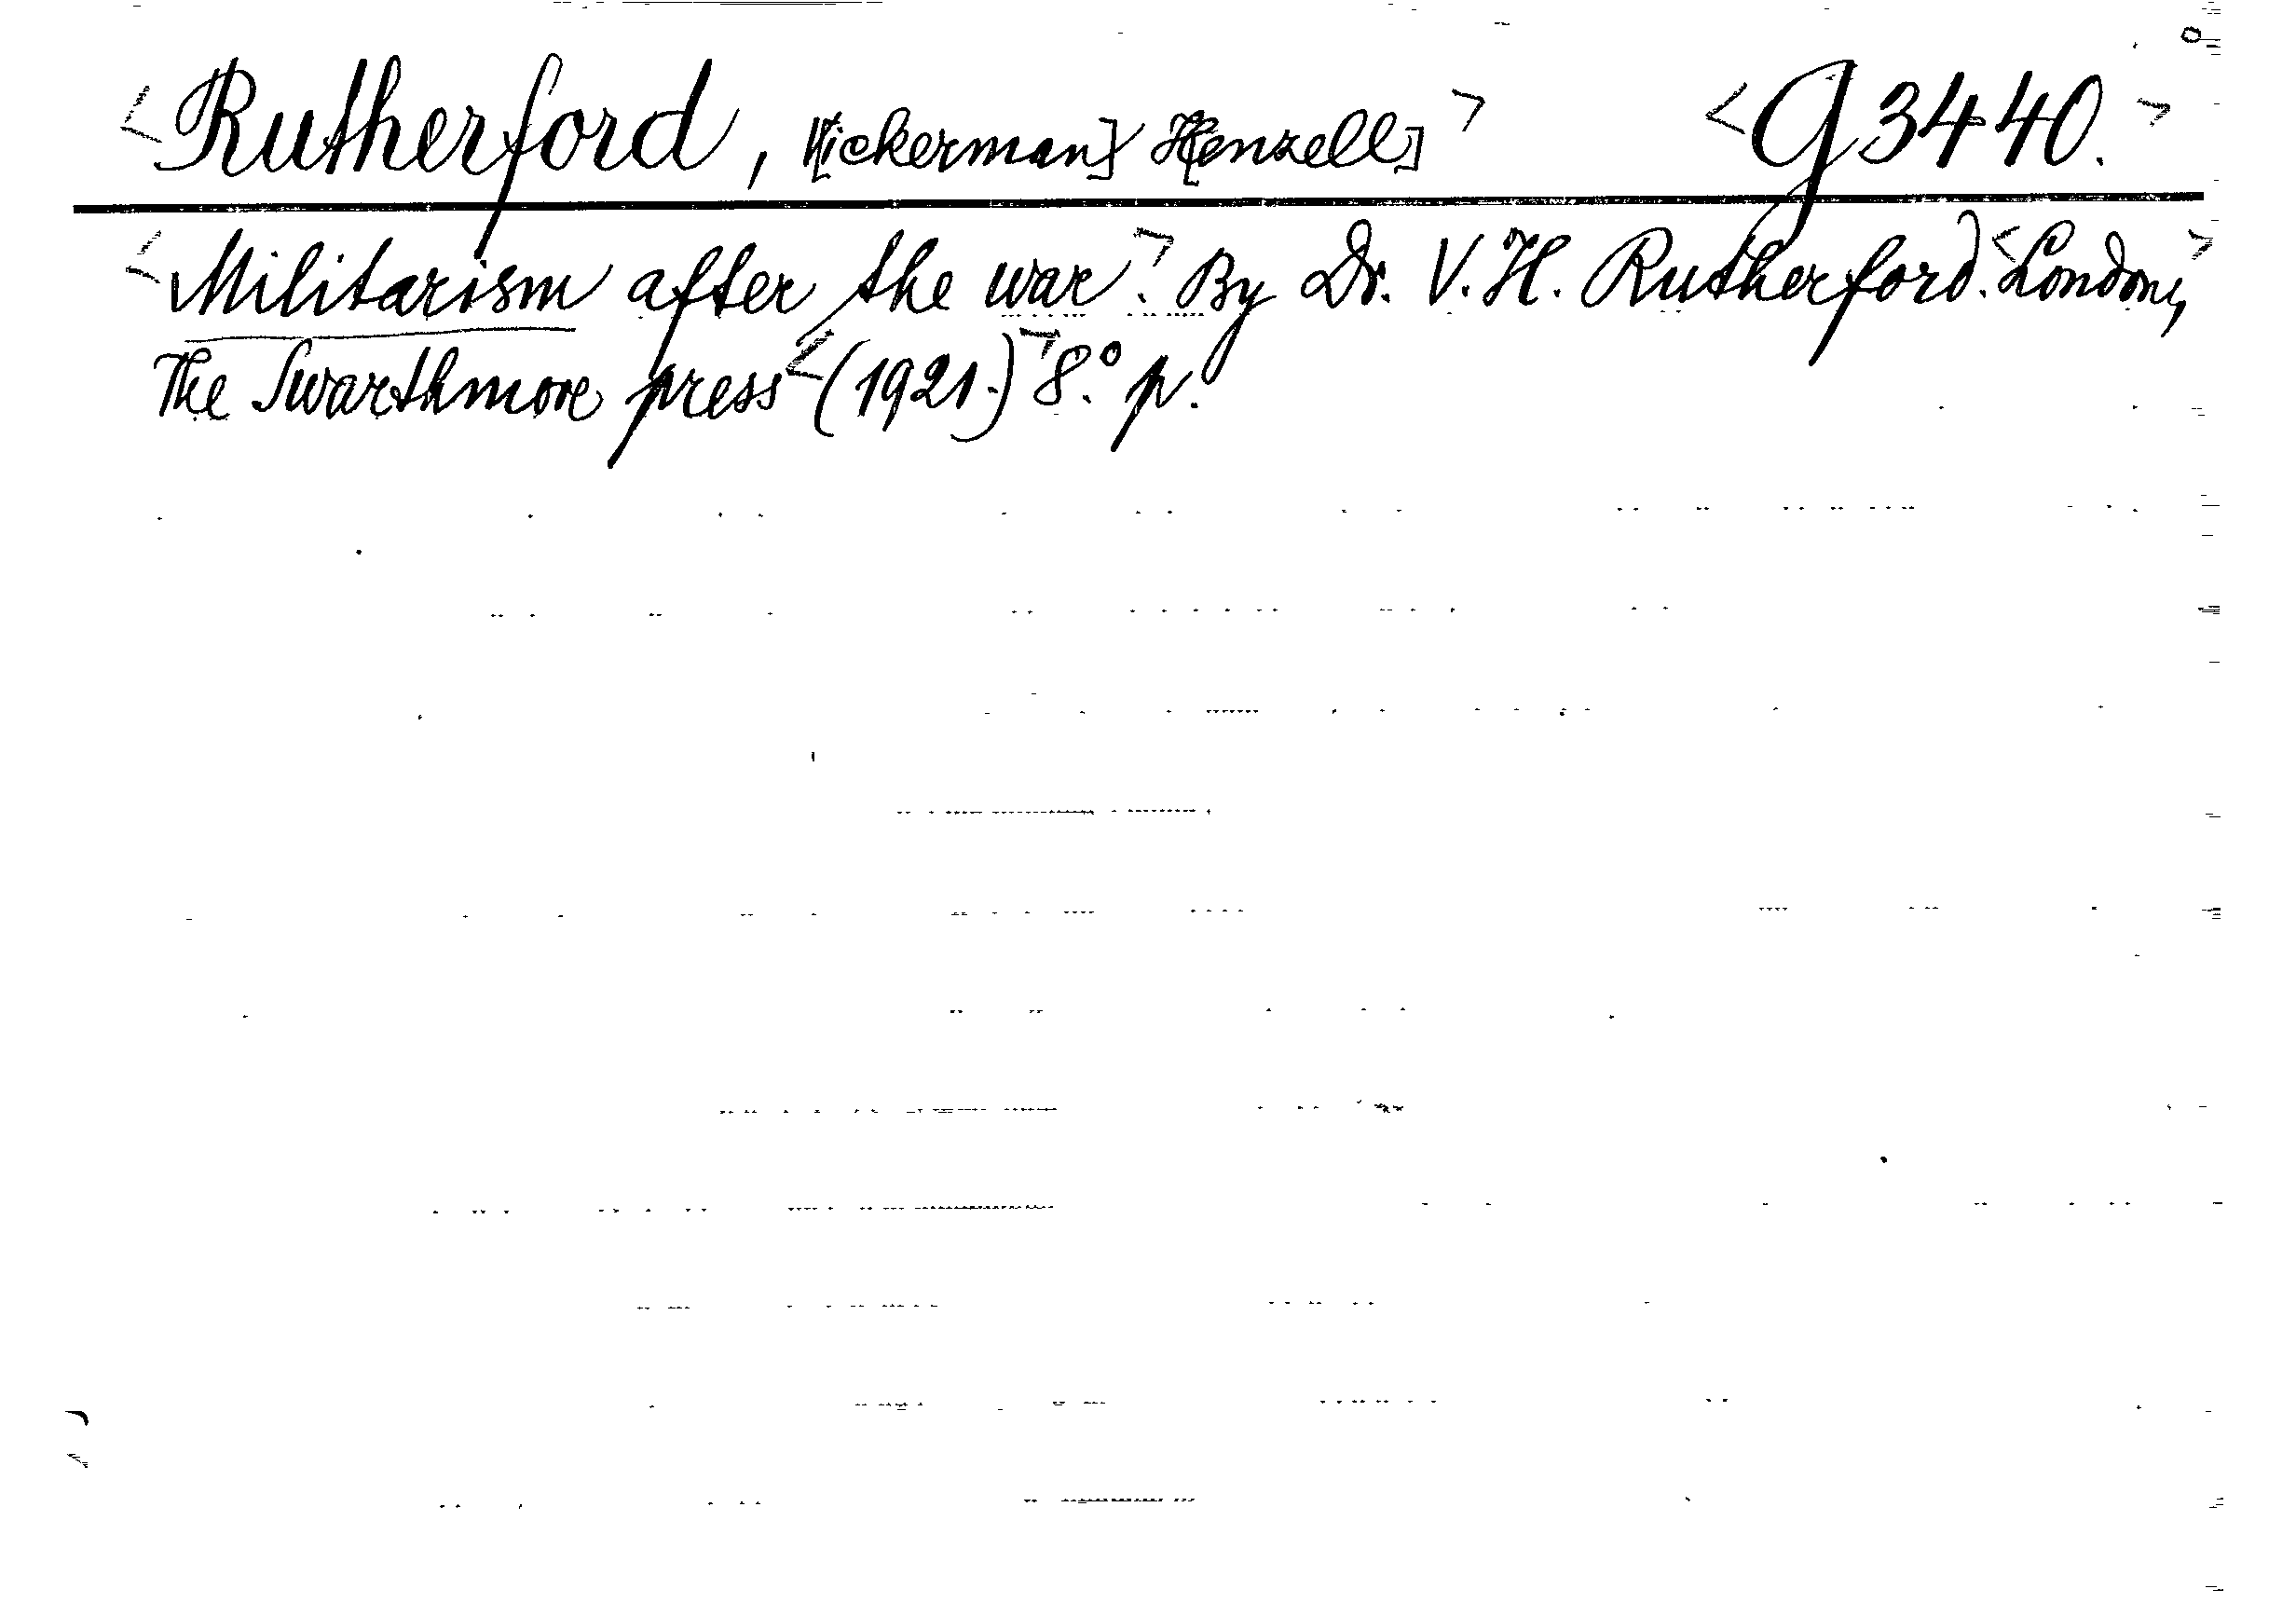 <Rutherford, V[ickerman] H[enzell]> <G 3440.>
<Militarism after the war>. By Dr. V. H. Rutherford. <London>,
The Swarthmore press <(1921.)> 8.° p.